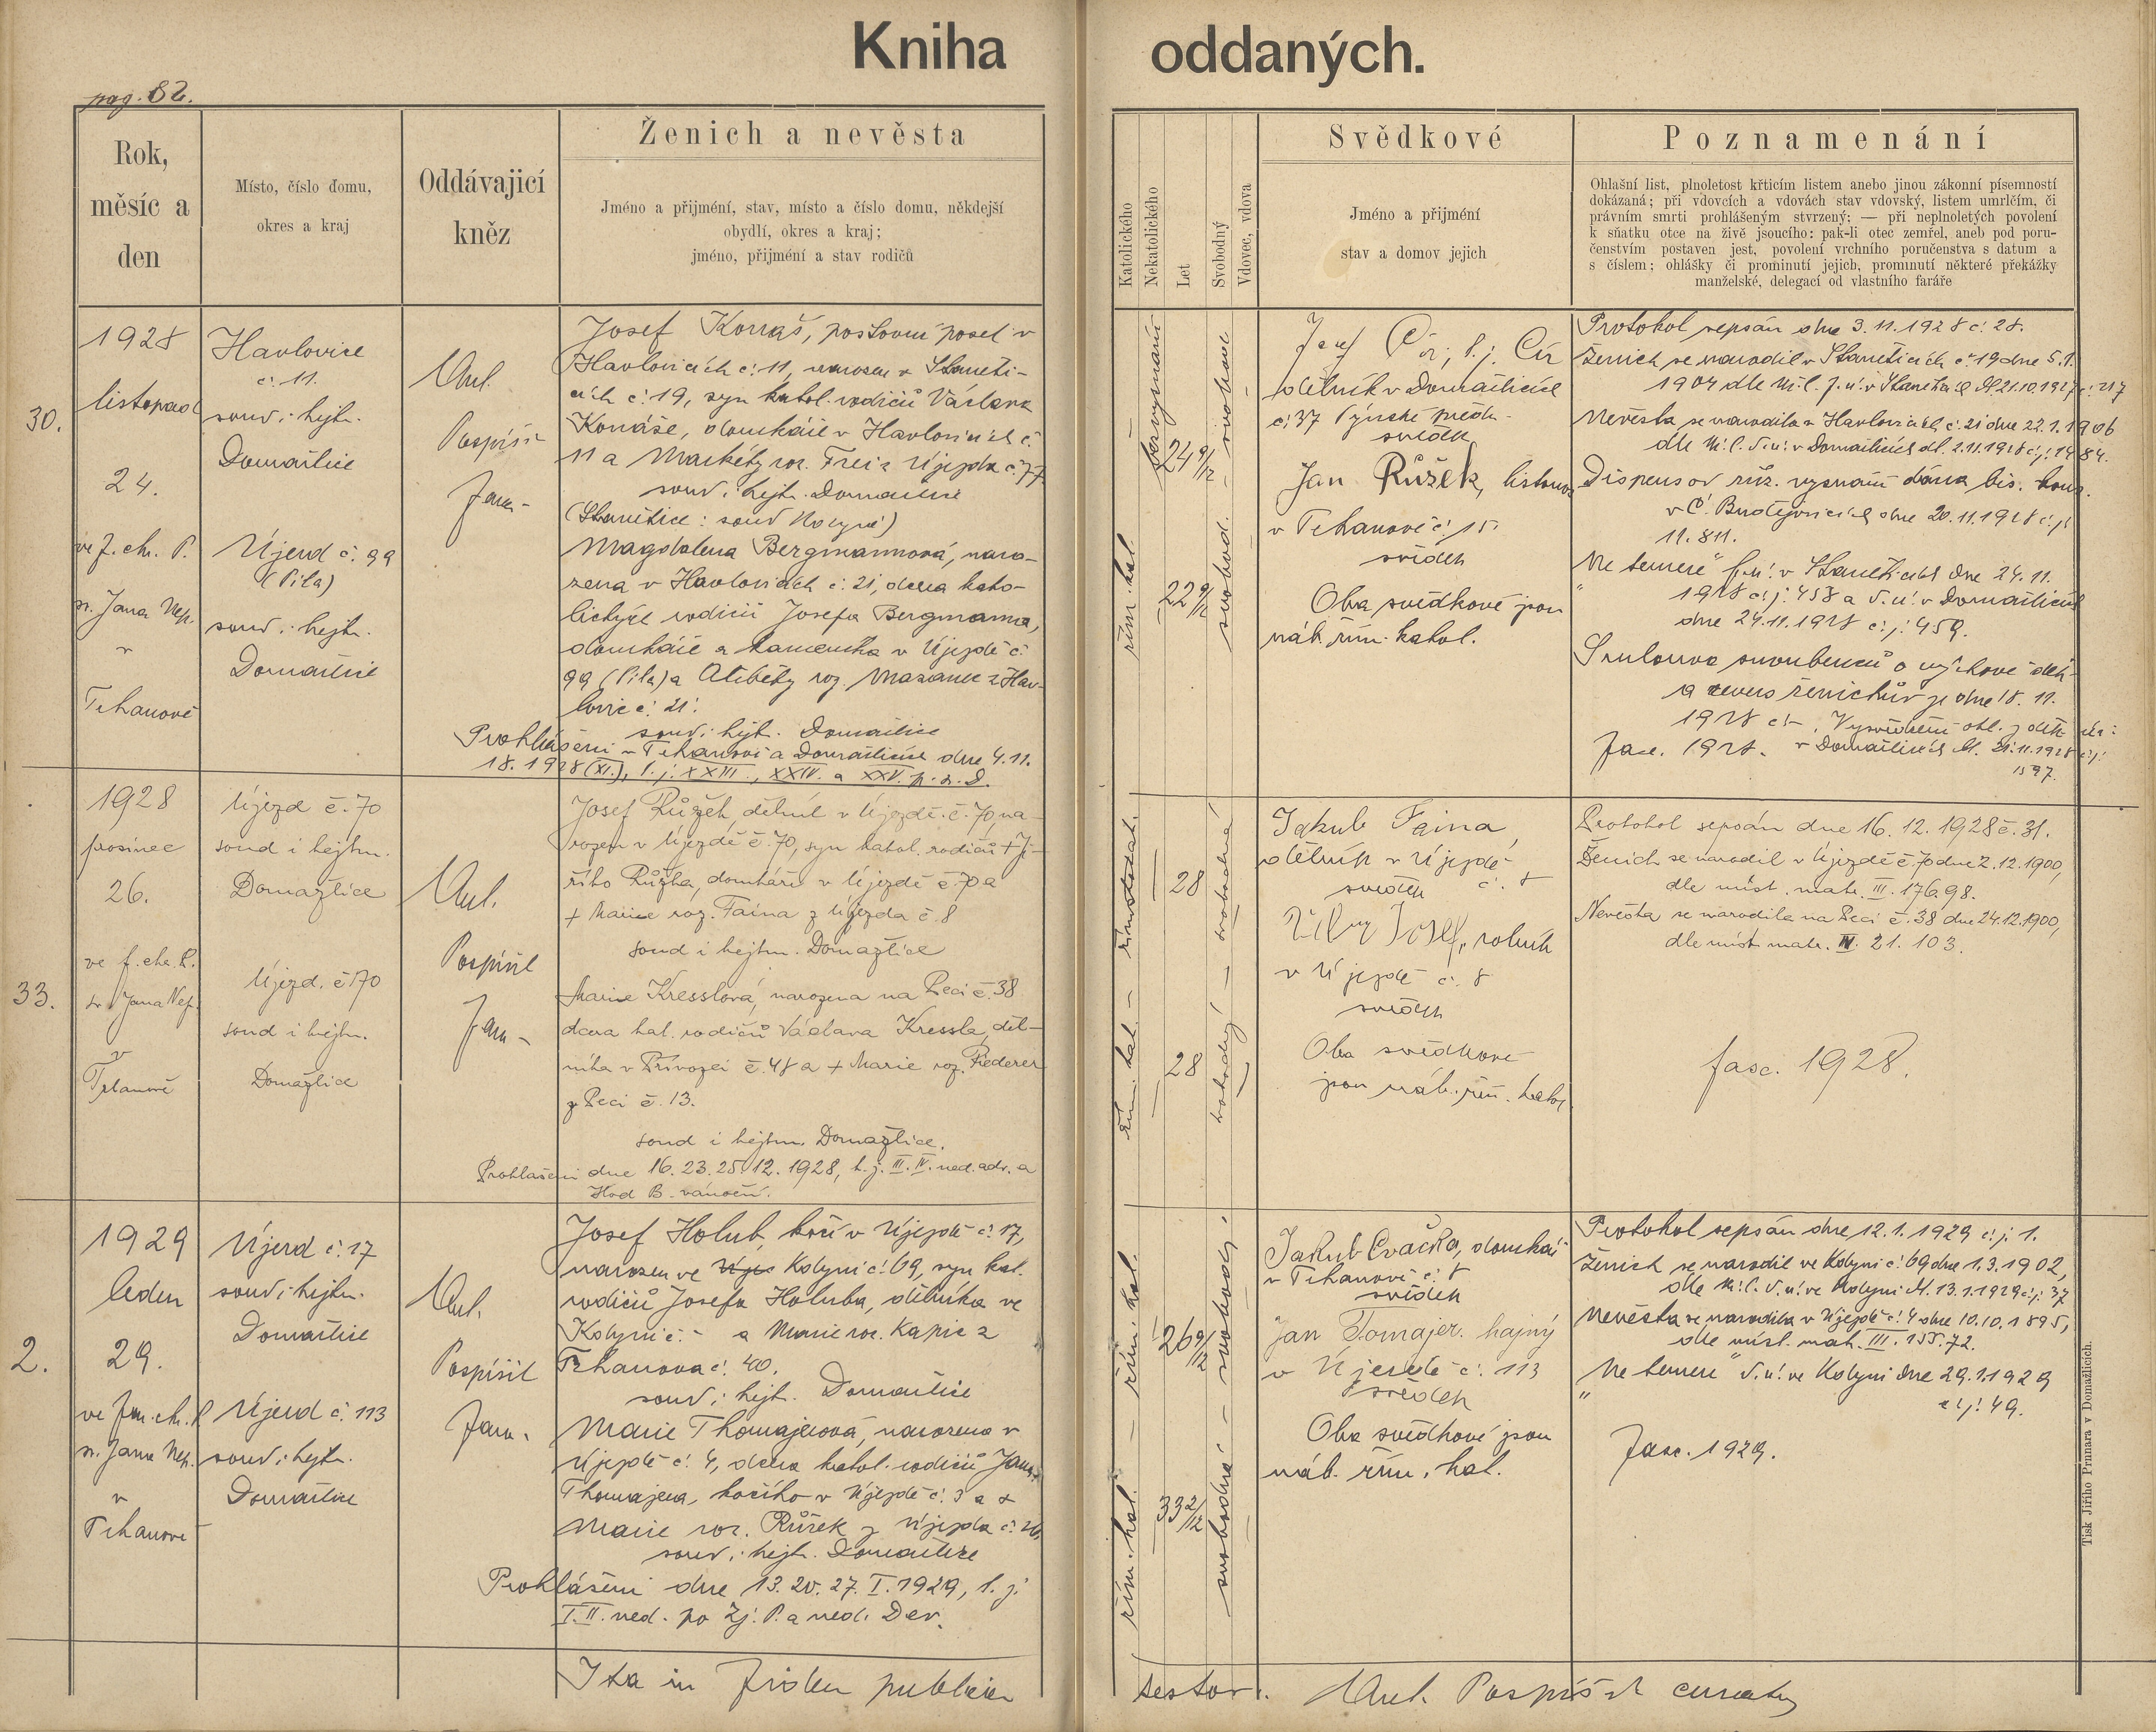 Kniha oddaných.
pag. 82.
Rok,
měsíc a
den
Místo, číslo domu,
okres a kraj
Oddávajicí
kněz
Ženich a nevěsta
Jméno a přijmení, stav, místo a číslo domu, někdejší
obydlí, okres a kraj;
jméno, přijmení a stav rodičů
Katolického
Nekatolického
Let
Svobodný
Vdovec, vdova
Svědkové
Jméno a přijmení
stav a domov jejich
Poznamenání
Ohlašní list, plnoletost křticím listem anebo jinou zákonní písemností
dokázaná; při vdovcích a vdovách stav vdovský, listem umrlčím, či
právním smrti prohlášeným stvrzený; — při neplnoletých povolení
k sňatku otce na živě jsoucího: pak-li otec zemřel, aneb pod poru-
čenstvím postaven jest, povolení vrchního poručenstva s datum a
s číslem; ohlášky či prominutí jejich, prominutí některé překážky
manželské, delegací od vlastního faráře
30.
1928
listopad
24.
ve f. chr. P.
sv. Jana Nep.
v
Trhanově
Havlovice
č. 11.
soud i hejt.
Domažlice
Újezd č. 99
(Pila)
soud i hejt.
Domažlice
Ant.
Pospíšil
Jana
Josef Konáš, poštovní posel v
Havlovicích č. 11, narozen v Staněti-
cích č. 19, syn katol. rodičů Václava
Konáše, domkáře v Havlovicích č.
11 a Markéty roz. Frei z Újezda č. 77
soud i hejt. Domažlice
(Stanětice: soud Kdyně)
Magdalena Bergmannová, naro-
zena v Havlovicích č. 21, dcera kato-
lických rodičů Josefa Bergmanna,
domkáře a kameníka v Újezdě č.
99 (Pila) a Alžběty roz. Mazanec z Hav-
lovic č. 21.
soud i hejt. Domažlice
Prohlášeni v Trhanově a Domažlicích dne 4. 11.
18. 1928 (XI.), t. j. XXIII., XXIV. a XXV. p. s. D.
bez vyznání
řím. kat.
24 9/12
22 9/12
svobod.
t. j. Cír
dělník v Domažlicích
č. 37 Týnské předm.
svědek
Jan Růžek, listonoš
v Trhanově č. 15.
svědek
Oba svědkové jsou
náb. řím. katol.
Protokol sepsán dne 3. 11. 1928 č. 28.
Ženich se narodil v Staněticích č. 19 dne 5. 1.
1904 dle k. l. f. ú. v Staněticích dd. 21. 10. 1927 č. 217
Nevěsta se narodila v Havlovicích č. 21 dne 22. 1. 1906
dle k. l. d. ú. v Domažlicích dd. 2. 11. 1928 č. j. 1484.
Dispens od růz. vyznání dána bis. konz.
v Č. Budějovicích dne 20. 11. 1928 č. j.
11.811.
„Ne temere“ f. ú. v Staněticích dne 24. 11.
1928 č. j. 458 a d. ú. v Domažlicích
dne 24. 11. 1928 č. j. 459.
Smlouva snoubenců o výchově dětí
a revers ženichův je dne 18. 11.
1928
Fasc. 1928. v Domažlicích dd. 21. 11. 1928 č. j.
1597.
33.
1928
prosinec
26.
ve f. chr. P.
sv. Jana Nep.
v
Trhanově
Újezd č. 70
soud i hejtm.
Domažlice
Újezd. č 70
soud i hejtm.
Domažlice
Ant.
Pospíšil
Jan
Josef Růžek, dělník v Újezdě č. 70, na-
rozen v Újezdě č. 70, syn katol. rodičů + Ji-
řího Růžka, domkáře v Újezdě č. 70 a
+ Marie roz. Faina z Újezda č. 8
soud i hejtm. Domažlice
Marie Kresslová, narozena na Peci č. 38
dcera kat. rodičů Václava Kressla, děl-
níka v Přívozci č. 48 a + Marie roz. Riederer
z Peci č. 13.
soud i hejtm. Domažlice.
Prohlášeni dne 16. 23. 25. 12. 1928, t. j. III. IV. ned. adv. a
Hod B. vánoční.
řím. kat. — římskokat.
28
28
svobodný — svobodná
Jakub Faina,
dělník v Újezdě
č. 8
svědek
Josef, rolník
v Újezdě č. 8
svědek
Oba svědkové
jsou náb. řím. katol.
Protokol sepsán dne 16. 12. 1928 č. 31.
Ženich se narodil v Újezdě č. 70 dne 2. 12. 1900,
dle míst. matr. III. 176. 98.
Nevěsta se narodila na Peci č. 38 dne 24. 12. 1900,
dle míst. matr. IV. 21. 103.
fasc. 1928.
2.
1929
leden
29.
ve f. chr. P.
sv. Jana Nep.
v
Trhanově
Újezd č. 17
soud i hejtm.
Domažlice
Újezd č. 113
soud i hejtm.
Domažlice
Ant.
Pospíšil
Jana
Josef Holub, kočí v Újezdě č. 17,
narozen ve Kdyni č. 69, syn kat.
rodičů Josefa Holuba, dělníka ve
Kdyni č. - a Marie roz. Kapic z
Trhanova č. 40.
soud i hejt. Domažlice
Marie Thomajerová, narozena v
Újezdě č. 4, dcera katol. rodičů Jana
Thomajera, kočího v Újezdě č. 3 a +
Marie roz. Růžek z Újezda č. 26,
soud i hejt. Domažlice
Prohlášeni dne 13. 20. 27. I. 1929, t. j.
I. II. ned. po Zj. P. a ned. Dev.
řím. kat. — řím. kat.
26 9/12
33 2/12
svobodný — svobodná
Jakub Cvačka, domkář
v Trhanově č. 8
svědek
Jan Tomajer. hajný
v Újezdě č. 113
svědek
Oba svědkové jsou
náb. řím. kat.
Protokol sepsán dne 12. 1. 1929 č. j. 1.
Ženich se narodil ve Kdyni č. 69 dne 1. 3. 1902,
dle k. l. d. ú. ve Kdyni dd. 13. 1. 1929 č. j. 37
Nevěsta se narodila v Újezdě č. 4 dne 10. 10. 1895,
dle míst. mat. III. 155. 72.
„Ne temere“ d. ú. ve Kdyni dne 29. 1. 1929
č. j. 49.
Fasc. 1929.
Ita in fidem publicam
testor: Ant. Pospíšil curatus
Tisk Jiřího Prunara v Domažlicích.